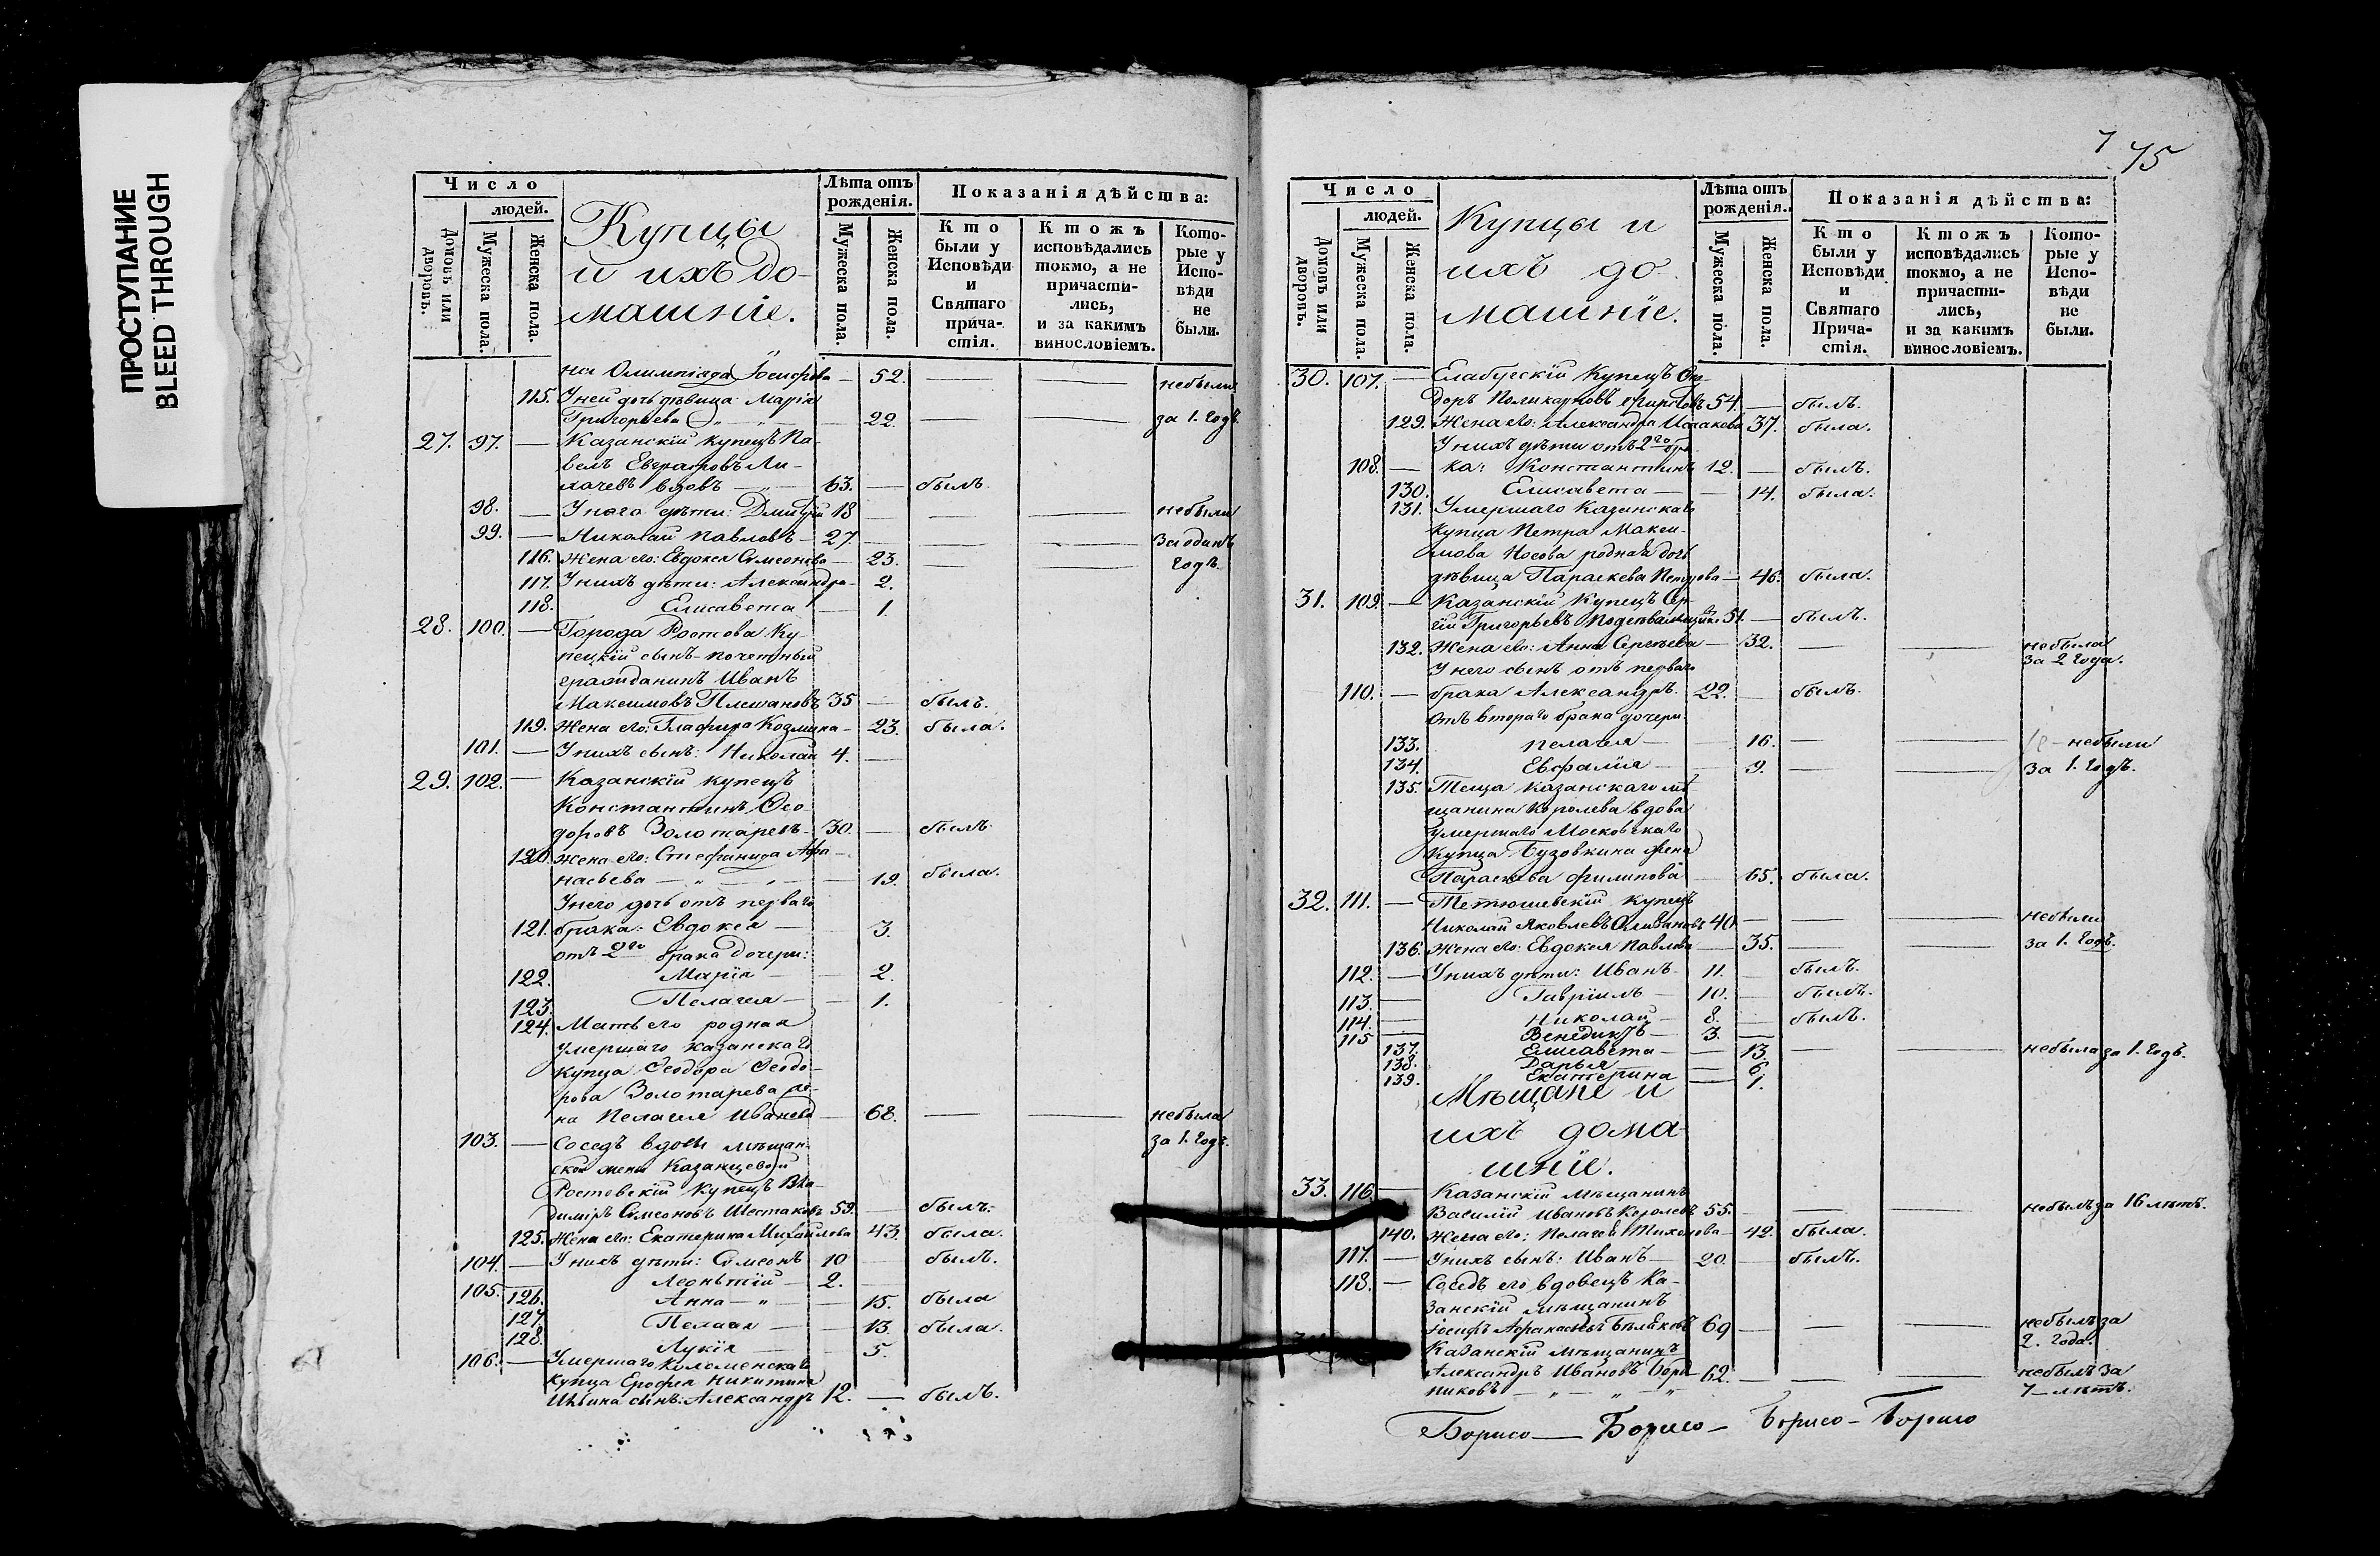 ПРОСТУПАНИЕ
BLEED THROUGH
Число
людей.
Домовъ или дворовъ.
Мужеска пола.
Женска пола.
Купцы
и ихъ до-
машніе.
Лѣта отъ рожденія.
Мужеска пола.
Женска пола.
Показанія дѣйства:
Кто были у Исповѣди и Святаго прича-стія.
Ктожъ исповѣдались токмо, а не причасти-лись, и за какимъ винословіемъ.
Кото-рые у Испо-вѣди не были.
на Олимпіада Іосифова — 52. — — небыли
115. У ней дочь дѣвица: Марія
Григорьева — 22. — за 1. годъ.
27. 97. — Казанскій купецъ Па-
велъ Евграфовъ Ли-
хачевъ вдовъ — 63. — былъ.
98. — У него дѣти: Дмитрій 18 — — небыли
99. — Николай Павловъ — 27. — — за одинъ
116. Жена его: Евдокея Симеонова — 23. — — годъ.
117. У нихъ дѣти: Александра — 2.
118. Елисавета — 1.
28. 100. — Города Ростова Ку-
пецкій сынъ почетный
гражданинъ Иванъ
Максимовъ Плешановъ 35 — былъ.
119. Жена его: Глафира Козмина — 23. была.
101. — У нихъ сынъ: Николай 4. —
29. 102. — Казанскій купецъ
Константинъ Ѳео-
доровъ Золотаревъ — 30. — былъ.
120. Жена его: Стефанида Афа-
насьева — 19. была.
У него дочь отъ перваго
121. брака: Евдокея — 3.
отъ 2го брака дочери:
122. Марія — 2.
123. Пелагея — 1.
124. Мать его родная
умершаго казанскаго
купца Ѳеодора Ѳеодо-
рова Золотарева же-
на Пелагея Иванова — 68. — — небыла
103. — Соседъ вдовы мѣщан- за 1. годъ.
ской жены Казанцевой
Ростовскій купецъ Вла-
димiръ Симеоновъ Шестаковъ 59. — былъ.
125. Жена его: Екатерина Михайлова 43. была.
104. — У нихъ дѣти: Симеонъ 10 былъ.
105. — Леонтій — 2.
126. Анна — 15. была
127. Пелагея — 13. была.
128. Лукія — 5.
106. — Умершаго Коломенскаго
купца Ерофея Никитина
сынъ: Александръ 12. — былъ.
7
75
Число
людей.
Домовъ или дворовъ.
Мужеска пола.
Женска пола.
Купцы и
ихъ до-
машніе.
Лѣта отъ рожденія.
Мужеска пола.
Женска пола.
Показанія дѣйства:
Кто были у Исповѣди и Святаго Прича-стія.
Ктожъ исповѣдались токмо, а не причасти-лись, и за какимъ винословіемъ.
Кото-рые у Испо-вѣди не были.
30. 107. — Елабугскій Купецъ Ѳео-
доръ Поликарповъ 54. — былъ.
129. Жена его: Александра Исаакова 37. была.
У нихъ дѣти отъ 2го бра-
108. — ка: Константинъ 12. — былъ.
130. Елисавета — 14. была.
131. Умершаго Казанскаго
купца Петра Макси-
мова Носова родная дочь
дѣвица Параскева Петрова — 46. была.
31. 109. — Казанскій Купецъ Сер-
гій Григорьевъ 51. — былъ.
132. Жена его: Анна Сергѣева — 32. — — небыла
У него сынъ отъ перваго за 2 года.
110. — брака Александръ. 22. былъ.
отъ втораго брака дочери:
133. Пелагея — 16. — — небыли
134. Евфалія 9. — — за 1. годъ.
135. Теща казанскаго мѣ-
щанина Королева вдова
умершаго Московскаго
купца Бузовкина жена
Параскева Филипова 65. была.
32. 111. — Тетюшевскій купецъ
Николай Яковлевъ 40 — — небыли
136. Жена его: Евдокея Павлова — 35. — — за 1. годъ.
112. — У нихъ дѣти: Иванъ 11. — былъ.
113. — Гавріилъ — 10. — былъ.
114. — Николай — 8. — былъ.
115 — Венедиктъ — 3. —
137. Елисавета — 13. — — небыла за 1. годъ.
138. Дарья — 6.
139. Екатерина — 1.
Мѣщане и
ихъ дома-
шніе.
33. 116. — Казанскій мѣщанинъ
Василій Ивановъ Королевъ 55. — — небылъ за 16 лѣтъ.
140. Жена его: Пелагея Тихонова — 42. была.
117. — У нихъ сынъ: Иванъ — 20. — былъ.
118. — Соседъ его вдовецъ Ка-
занскій мѣщанинъ
Іосифъ Афанасьевъ Бѣляковъ 69 — — небылъ за
Казанскій мѣщанинъ 2. года.
Александръ Ивановъ 62. — — небылъ за
7 — лѣтъ.
Борисо — Борисо — Борисо — Борисо